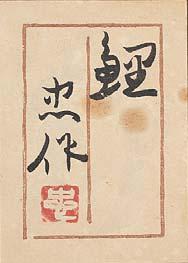 鯉
忠作